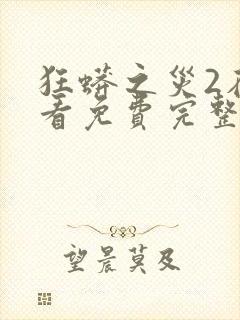 狂蟒之灾2
看免费完整
望晨莫及